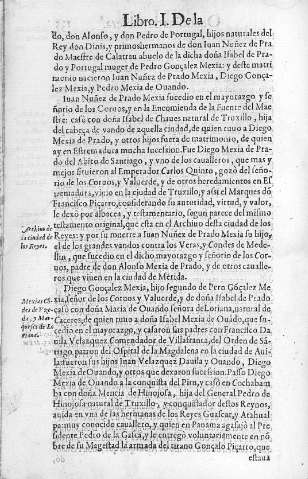 Libro. I. De la
do, don Alonso, y don Pedro de Portugal, hijos naturales del
Rey don Dinis, y primos hermanos de don Iuan Nuñez de Pra
do Maestre de Calatraua abuelo de la dicha doña Isabel de Prado
y Portugal muger de Pedro Gonçalez Mexia: y deste matri
monio nacieron Iuan Nuñez de Prado Mexia, Diego Gonça-
lez Mexia, y Pedro Mexia de Ouando.
Iuan Nuñez de Prado Mexia sucedio en el mayorazgo y se
ñorio de los Coruos, y en la Encomienda de la Fuente del Maes
tre: casò con doña Isabel de Chaues natural de Truxillo, hija
del cabeça de vando de aquella ciudad, de quien tuuo a Diego
Mexia de Prado, y otros hijos fuera de matrimonio, de quien
ay en Estremadura mucha sucession. Fue Diego Mexia de Pra-
do del Abito de Santiago, y vno de los caualleros, que mas y
mejor siruieron al Emperador Carlos Quinto, gozò del seño-
rio de los Coruos, y Valuerde, y de otros heredamientos en Es
tremadura, viuio en la ciudad de Truxillo, y assi el Marques don
Francisco Piçarro, considerando su autoridad, virtud, y valor,
le dexò por albacea, y testamentario, segun parece del mismo
testamento original, que esta en el Archiuo desta ciudad de los
Reyes: y por su muerte a Iuan Nuñez de Prado Mexia su hijo,
el de los grandes vandos contra los Veras, y Condes de Mede-
llin, que sucedio en el dicho mayorazgo y señorio de los Cor-
uos, padre de don Alonso Mexia de Prado, y de otros caualle-
ros que viuen en la ciudad de Merida.
Archiuo de
la ciudad de
los Reyes.
Diego Gonçalez Mexia, hijo segundo de Pero Gõçalez Me
xia, señor de los Coruos y Valuerde, y de doña Isabel de Prado
casò con doña Maria de Ouando señora de Loriana, natural de
Caceres, de quien tuuo a doña Isabel Mexia de Ouãdo, que su-
cedio en el mayorazgo, y casaron sus padres con Francisco Da
uila Velazquez Comendador de Villafranca, del Orden de Sã-
tiago, patron del Ospital de la Magdalena en la ciudad de Aui-
la, fueron sus hijos Iuan Velazquez Dauila y Ouando, Diego
Mexia de Ouando, y otros que dexaron sucession. Passò Diego
Mexia de Ouando a la conquista del Piru, casò en Cochabam
ba con doña Mencia de Hinojosa, hija del General Pedro de
Hinojosa natural de Truxillo, y conquistador destos Reynos,
auida en vna de las hermanas de los Reyes Guascar, y Atahual
pa muy conocido cauallero, y quien en Panama agasajò al Pre
sidente Pedro de la Gasca, y le entregò voluntariamente en nõ
bre de su Magestad la armada del tirano Gonçalo Piçarro, que
estaua